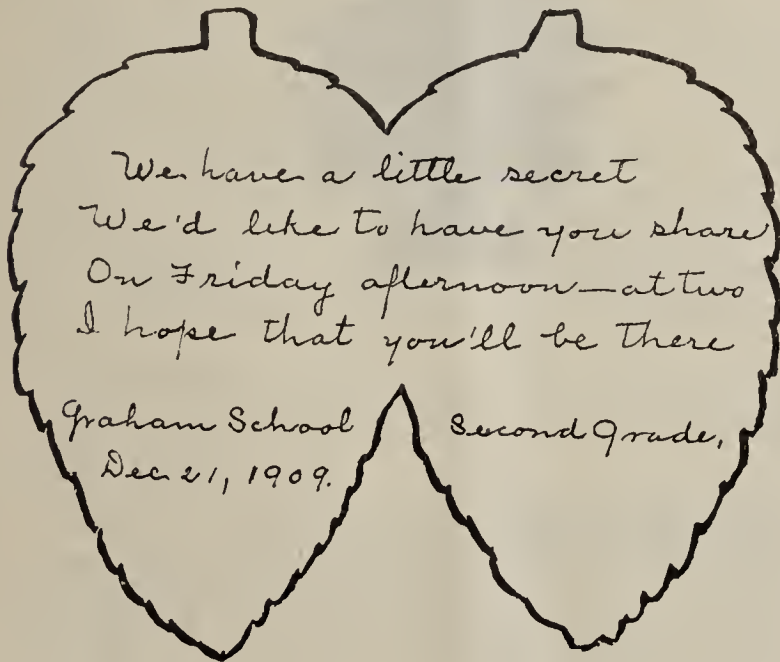 We have a little secret
We'd like to have you share
On Friday afternoon—at two
I hope that you'll be there
Graham School Second Grade,
Dec 21, 1909.